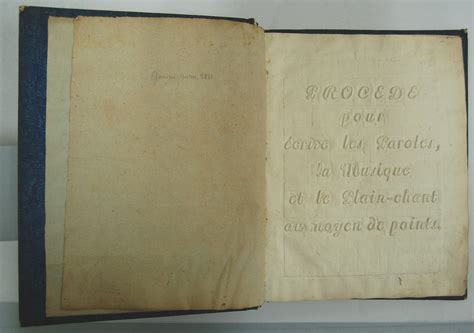 PROCÉDÉ
pour
écrire les Paroles,
la Musique
et le Plain-chant
au moyen de points.